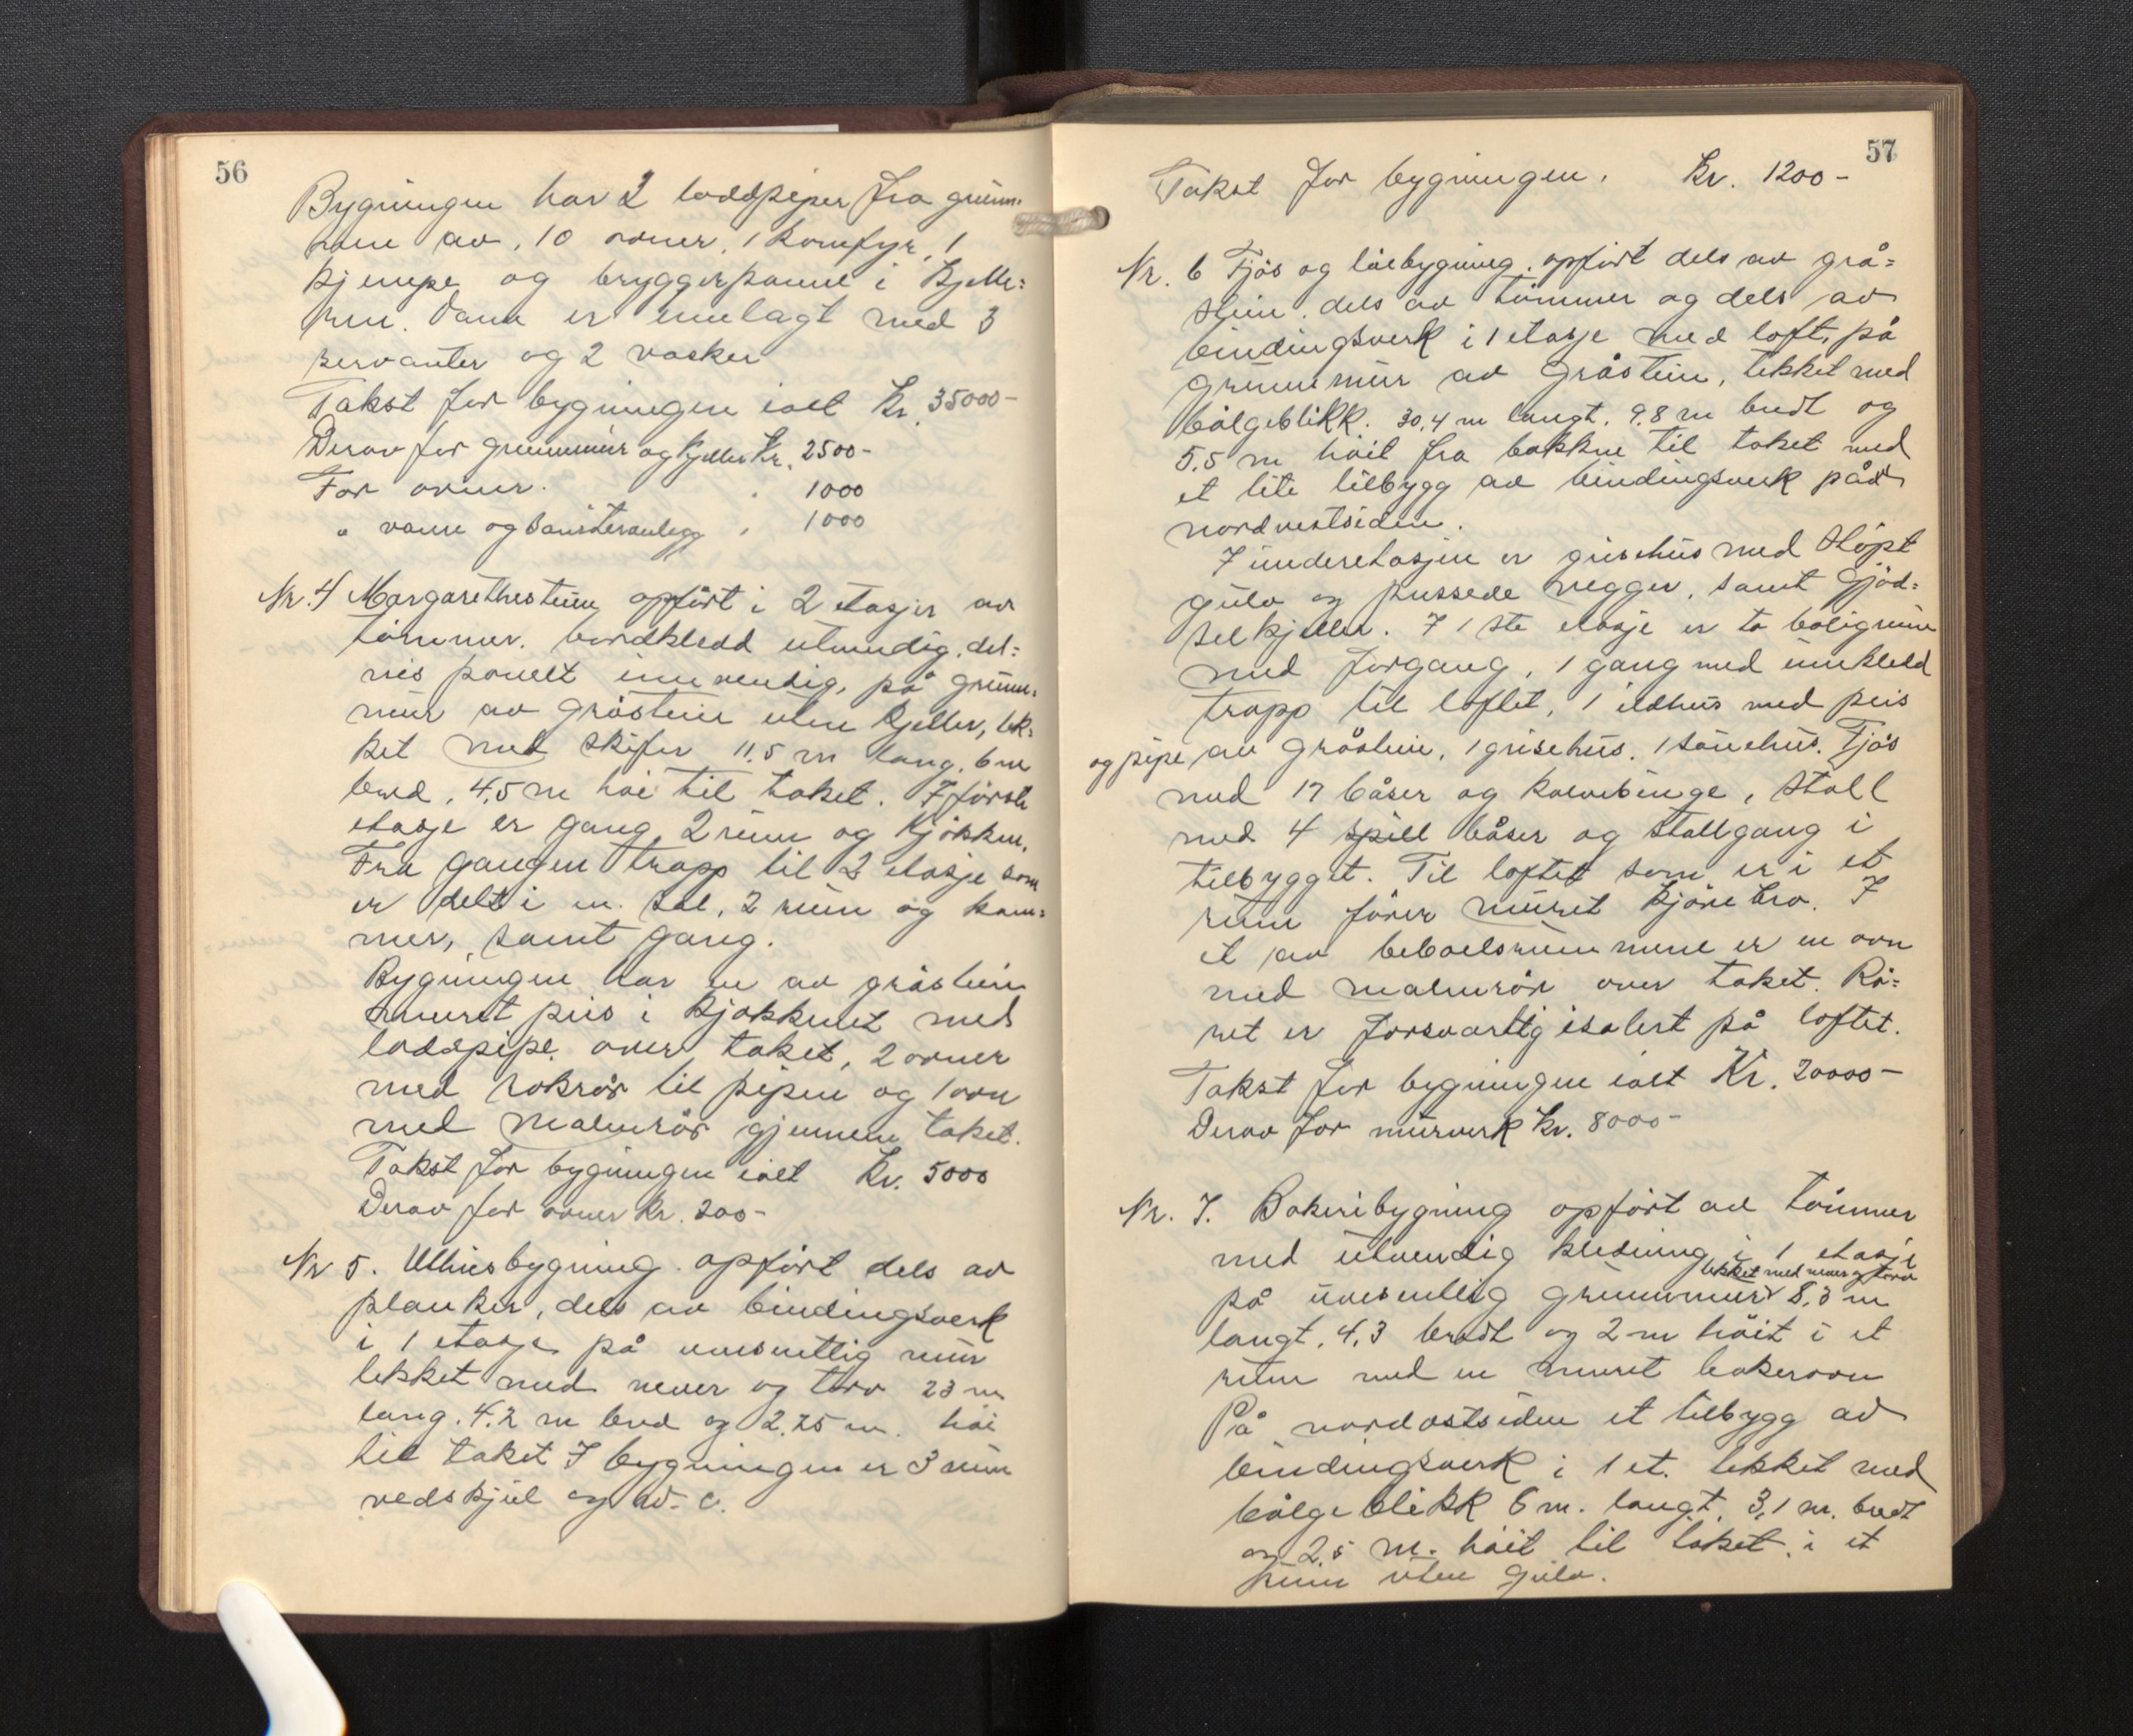 56
Bygningen har 2 loddpiper fra grunn-
nen av, 10 ovner, 1 komfyr, 1
kjempe og bryggerpanne i Kjelle=
ren. Vann er innlagt med 3
servanter og 2 vasker
Takst for bygningen ialt Kr. 35000-
Derav for grunnmur og kjeller Kr. 2500-
For ovner. " 1000
" vann og Sanitæranlegg " 1000
Nr. 4 Margarethestuen opført i 2 etasjer av
tømmer. bordkledd utvendig, del=
vis panelt innvendig, på grunn-
mur av gråstein uten kjeller, tek-
ket med skifer 11,5 m lang, 6 m
bred, 4,5 m høi til taket. I første
etasje er gang, 2 rum og kjøkken.
Fra gangen trapp til 2 etasje som
er delt i en sal, 2 rum og kam=
mer, samt gang.
Bygningen har en av gråstein
muret peis i kjøkkenet med
loddpipe over taket, 2 ovner
med rokrør til pipen og 1 ovn
med malmrør gjennem taket.
Takst for bygningen ialt Kr. 5000
Derav for ovner Kr. 200-
Nr 5. Uthusbygning opført dels av
planker, dels av bindingsverk
i 1 etasje på uvesentlig mur
tekket med never og torv 23 m
lang. 4.2 m bred og 2.75 m. høi
til taket I bygningen er 3 rum
vedskjul og w. c.
57
Takst for bygningen. Kr. 1200-
Nr. 6 Fjøs og låebygning, opført dels av grå=
stein, dels av tømmer og dels av
bindingsverk i 1 etasje med loft, på
grunnmur av gråstein, tekket med
bølgeblikk. 30,4 m langt. 9,8 m bredt og
5,5 m høit fra bakken til taket med
et lite tilbygg av bindingsverk på
nordvestsiden.
I underetasjen er grisehus med støpt
gulv og pussede vegger, samt gjød=
selkjeller. I 1ste etasje er to boligrum
med forgang, 1 gang med innkledd
trapp til loftet, 1 ildhus med peis
og pipe av gråstein, 1 grisehus. 1 sauehus. Fjøs
med 17 båser og kalvebinge, stall
med 4 spill båser og stallgang i
tilbygget. Til loftet som er i et
rum fører muret kjørebro. I
et av beboelsrummene er en ovn
med malmrør over taket. Rø=
ret er forsvarlig isolert på loftet.
Takst for bygningen ialt Kr. 20000-
Derav for murverk Kr. 8000-
Nr. 7. Bakeribygning opført av tømmer
med utvendig kledning i 1 etasje
tekket med never og torv
på uvesentlig grunnmur 8,3 m
langt, 4,3 bredt og 2 m høit i et
rum med en muret bakerovn
På nordostsiden et tilbygg av
bindingsverk i 1 et. tekket med
bølgeblikk 6 m. langt, 3,1 m. bredt
og 2,5 m. høit til taket i et
rum uten gulv.